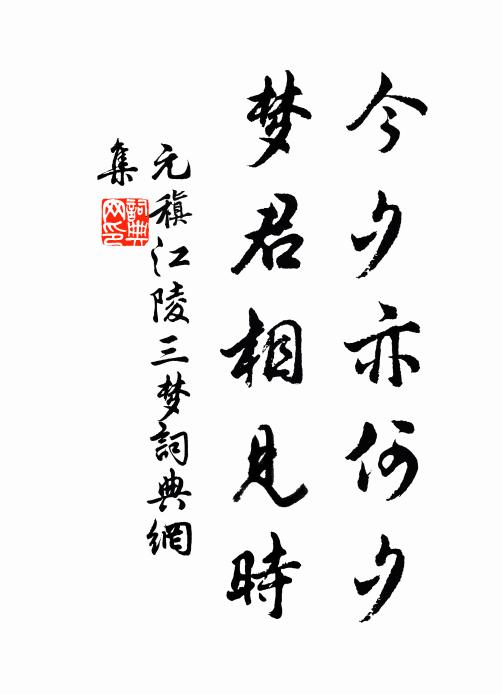 今夕亦何夕
梦君相见時
元稹江陵三梦詞典網
集
詞典
网印